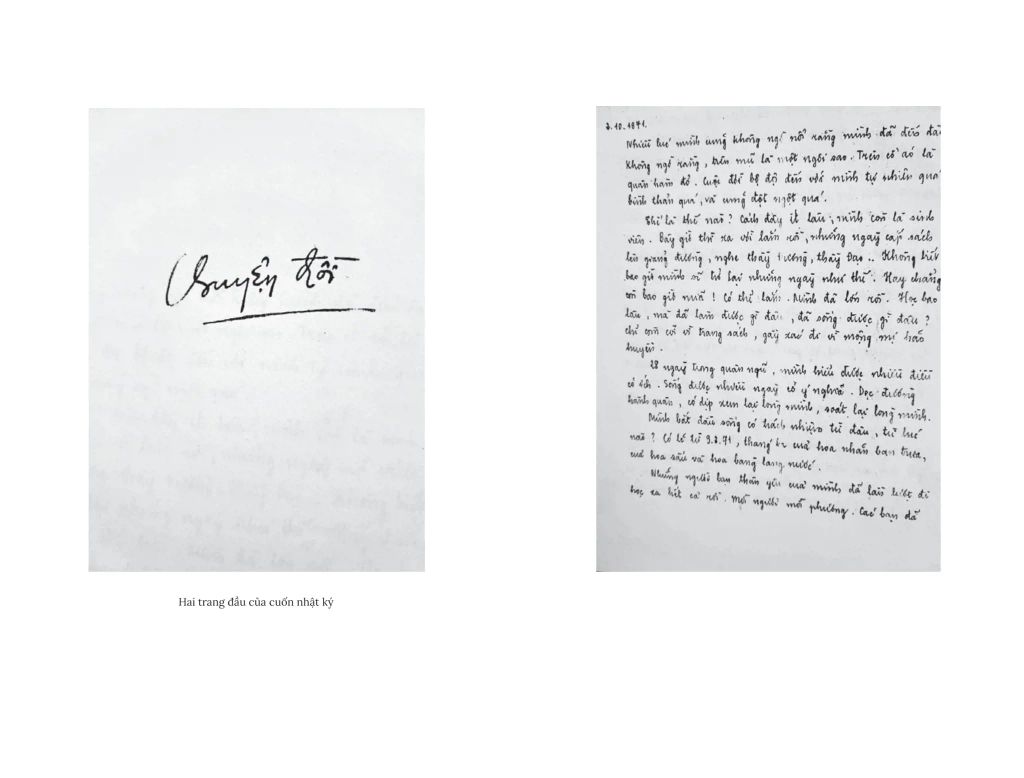 Chuyện đời
Hai trang đầu của cuốn nhật ký
2.10.1971.
Nhiều lúc mình cũng không ngờ nổi rằng mình đã đến đây
Không ngờ rằng, trên mũ là một ngôi sao. Trên cổ áo là
quân hàm đỏ. Cuộc đời bộ đội đến với mình tự nhiên quá
bình thản quá, và cũng đột ngột quá.
Thế là thế nào? Cách đây ít lâu, mình còn là sinh
viên. Bây giờ thì xa vời lắm rồi, những ngày cắp sách
lên giảng đường, nghe thầy Đường, thầy Đạo.. Không biết
bao giờ mình sẽ trở lại những ngày như thế. Hay chẳng
còn bao giờ nữa! Có thể lắm. Mình đã lớn rồi. Học bao
lâu, mà đã làm được gì đâu, đã sống được gì đâu?
chỉ còn cói vì trang sách, gầy xác đi vì mộng mị hão
huyền.
28 ngày trong quân ngũ, mình hiểu được nhiều điều
có ích. Sống được nhiều ngày có ý nghĩa. Dọc đường
hành quân, có dịp xem lại lòng mình, soát lại lòng mình.
Mình bắt đầu sống có trách nhiệm từ đâu, từ lúc
nào? Có lẽ từ 9.3.71, tháng ba của hoa nhãn ban trưa,
của hoa sấu và hoa bằng lăng nước.
Những người bạn thân yêu của mình đã lần lượt đi
học xa hết cả rồi. Mỗi người mỗi phương. Các bạn đã